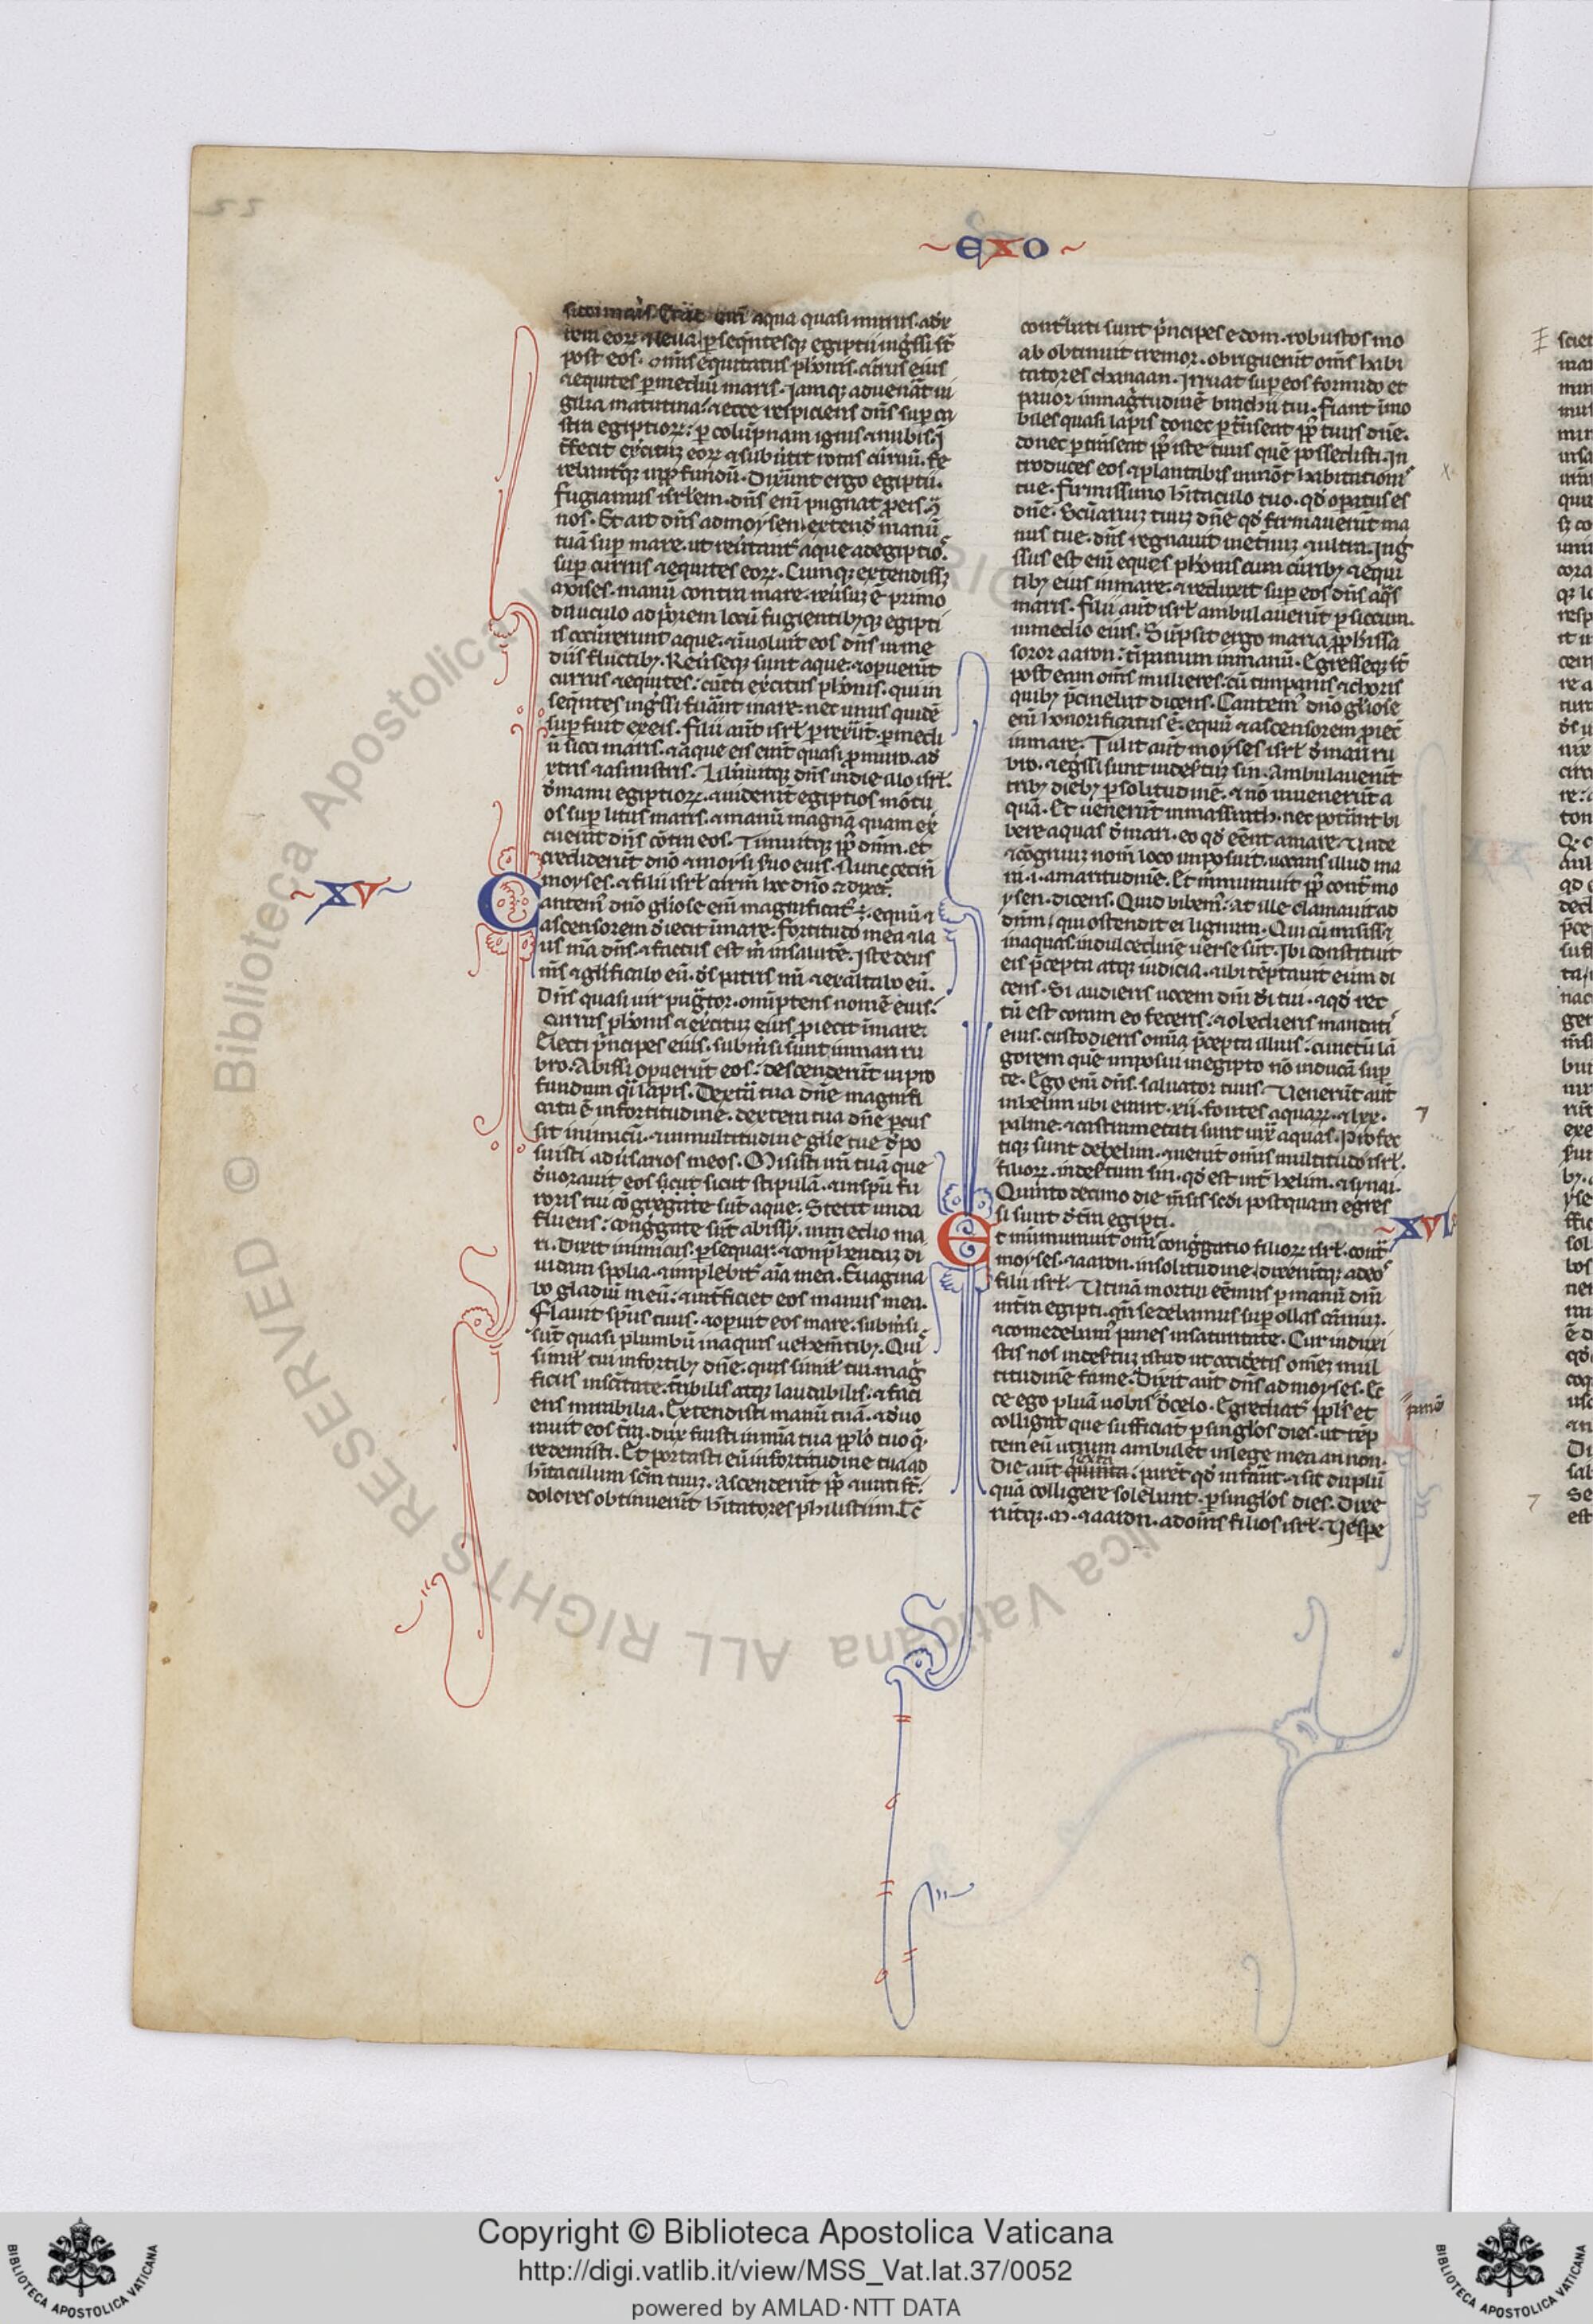 EXO
sicci maris. Erat eni aqua quasi murus. a dex
tera eorum & leua. persequentesque egiptii ingressi sunt
post eos. omnis equitatus pharaonis. currus eius
& equites per medium maris. Iamque aduenerat ui
gilia matutina. & ecce respiciens dns super ca
stra egiptiorum. per columpnam ignis & nubis. in
terfecit exercitum eorum & subuertit rotas curruum. fe
rebanturque in profundum. Dixerunt ergo egiptii.
fugiamus israhelem. dns enim pugnat pro eis contra
nos. Et ait dns ad moysen. extende manum
tuam super mare. ut reuertantur aque ad egiptios.
super currus & equites eorum. Cumque extendisset
moises. manum contra mare. reuersum est primo
diluculo ad priorem locum fugientibusque egipti
is occurrerunt aque. & inuoluit eos dns in me
diis fluctibus. Reuerseque sunt aque. & operuerunt
currus & equites. cuncti exercitus pharaonis. qui in
sequentes ingressi fuerant mare. nec unus quidem
superfuit ex eis. filii autem israhel perrexerunt. per medi
um sicci maris. & aque eis erant quasi pro muro. a de
xtris & a sinistris. Liberauitque dns in die illo israhel.
de manu egiptiorum. & uiderunt egiptios mortu
os super litus maris. & manum magnam quam exer
cuerat dns contra eos. Timuitque populus dnm. et
crediderunt dno & moysi seruo eius. Tunc cecinit
moyses. & filii israhel carmen hec dno & dixerunt.
XV
Cantemus dno gloriose enim magnificatus est. equum &
ascensorem deiecit in mare. fortitudo mea & la
us mea dns. & factus est michi in salutem. Iste deus
meus & glorificabo eum. deus patris mei & exaltabo eum.
Dns quasi uir pugnator. omnipotens nomen eius.
currus pharaonis & exercitum eius proiecit in mare.
Electi principes eius. submersi sunt in mari ru
bro. Abissi operuerunt eos. descenderunt in pro
fundum quasi lapis. Dextera tua domine magnifi
cata est in fortitudine. dextera tua domine percus
sit inimicum. & in multitudine glorie tue depo
suisti aduersarios meos. Misisti iram tuam que
deuorauit eos sicut sicut stipulam. & in spiritu fu
roris tui congregate sunt aque. Stetit unda
fluens. congregate sunt abissi. in medio ma
ri. Dixit inimicus. persequar. & comprehendam di
uidam spolia. & implebitur anima mea. Euagina
bo gladium meum. & interficiet eos manus mea.
Flauit spiritus tuus. & operuit eos mare. submersi
sunt quasi plumbum in aquis uehementibus. Quis
similis tui in fortibus domine. quis similis tui. magni
ficus in sanctitate. terribilis atque laudabilis. & faci
ens mirabilia. Extendisti manum tuam. & deuo
rauit eos terra. dux fuisti in misericordia tua populo tuo quem
redemisti. Et portasti eum in fortitudine tua ad
habitaculum sanctum tuum. Ascenderunt populi & irati sunt.
dolores obtinuerunt habitatores philistiim. Tunc
conturbati sunt principes edom. robustos mo
ab obtinuit tremor. obriguerunt omnes habi
tatores chanaan. Irruat super eos formido et
pauor in magnitudine brachii tui. fiant immo
biles quasi lapis donec pertranseat populus tuus domine.
donec pertranseat populus iste tuus quem possedisti. In
troduces eos & plantabis in monte habitationis
tue. firmissimo habitaculo tuo. quod operatus es
domine. Sanctuarium tuum domine quod firmauerunt ma
nus tue. dns regnauit in eternum & ultra. Ingre
ssus est enim eques pharaonis cum curribus & equi
tibus eius in mare. & reduxit super eos dns aquas
maris. filii autem israhel ambulauerunt per siccum.
in medio eius. Sumpsit ergo maria prophetissa
soror aaron. timpanum in manu. Egresseque sunt
post eam omnes mulieres. cum timpanis & choris
quibus precinebat dicens. Cantemus domino gloriose
enim honorificatus est. equum & ascensorem proiecit
in mare. Tulit autem moyses israhel de mari ru
bro. & egressi sunt in desertum sin. Ambulauerunt
tribus diebus per solitudinem. & non inuenerunt a
quam. Et uenerunt in marath. nec poterant bi
bere aquas de mari. eo quod essent amare. Unde
& congruum nomen loco imposuit. uocans illud ma
ra .i. amaritudinem. Et murmurauit populus contra mo
ysen. dicens. Quid bibemus. At ille clamauit ad
dnm. qui ostendit ei lignum. Qui cum misisset
in aquas. in dulcedinem uerse sunt. Ibi constituit
eis precepta atque iudicia. & ibi temptauit eum di
cens. Si audieris uocem dni dei tui. & quod rec
tum est coram eo feceris. & obedieris mandatis
eius. custodierisque omnia precepta illius. cunctum lan
gorem quem imposui in egipto non inducam super
te. Ego enim dns. saluator tuus. Uenerunt autem
in helim ubi erant .xii. fontes aquarum. & lxx.
palme. & castrametati sunt iuxta aquas. Profec
tique sunt de helim. & uenit omnis multitudo israhel.
filiorum. in desertum sin. quod est inter helim. & synai.
Quinto decimo die mensis secundi postquam egres
si sunt de terra egipti.
XVI
Et murmurauit omnis congregatio filiorum israhel. contra
moyses. & aaron. in solitudine. dixeruntque ad eos
filii israhel. Utinam mortui essemus per manum dni
in terra egipti. quando sedebamus super ollas carnium.
& comedebamus panes in saturitate. Cur induxi
stis nos in desertum istud ut occideretis omnem mul
titudinem fame. Dixit autem dns ad moyses. Ec
ce ego pluam uobis de celo. Egrediatur populus et
colligat que sufficiant per singulos dies. ut temp
tem eum utrum ambulet in lege mea an non.
Die autem quinta sexta. parent quod inferant. & sit duplum
quam colligere solebant. per singulos dies. Dixe
runtque .M. & aaron. ad omnes filios israhel. Uespe
Copyright © Biblioteca Apostolica Vaticana
http://digi.vatlib.it/view/MSS_Vat.lat.37/0052
powered by AMLAD·NTT DATA